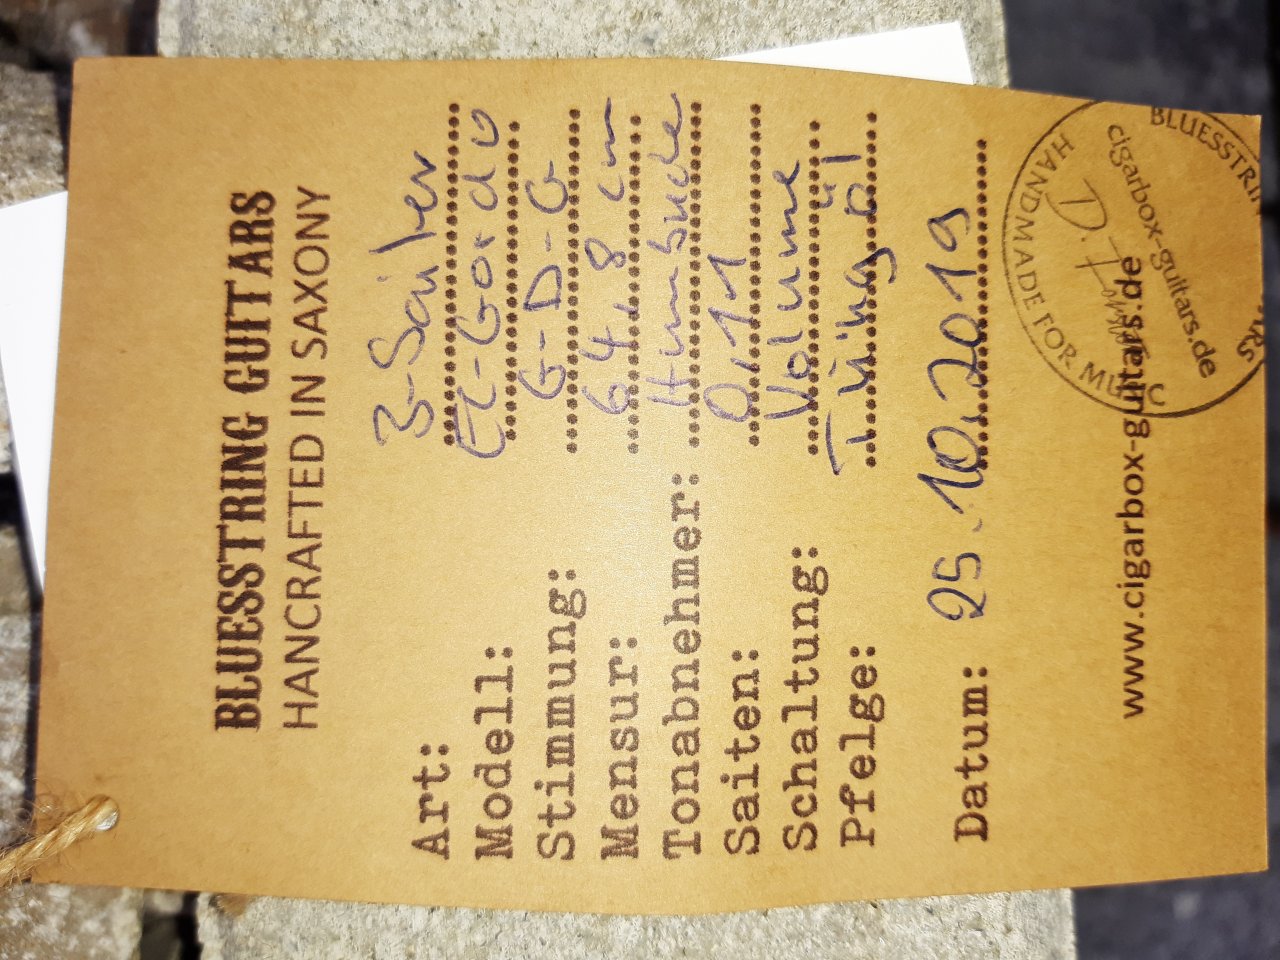 BLUESSTRING GUITARS
HANCRAFTED IN SAXONY
Art: 3-Saiter
Modell: El-Gordo
Stimmung: G-D-G
Mensur: 64,8 cm
Tonabnehmer: Humbucker
Saiten: 0,11
Schaltung: Volume
Pfelge: Tungöl
Datum: 25.10.2019
www.cigarbox-guitars.de
BLUESSTRI
HANDMADE FOR MUSIC
cigarbox-guitars.de